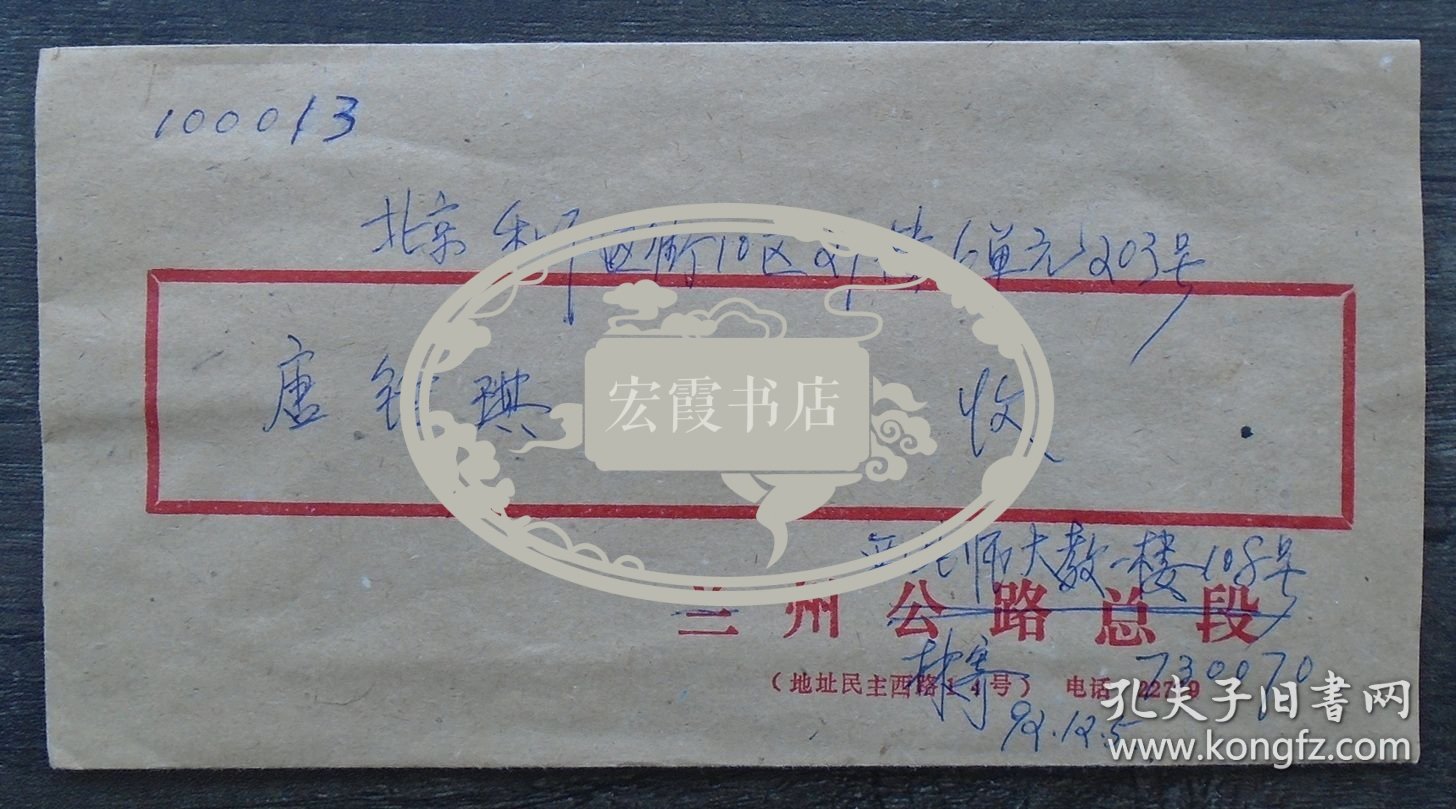 100013
北京和平街10区21楼6单元203号
唐
琪
收
宏霞书店
西北师大教一楼108号
兰州公路总段
林寄
730070
(地址民主西路 号) 电话 227 9
92.12.5
孔夫子旧书网
www.kongfz.com